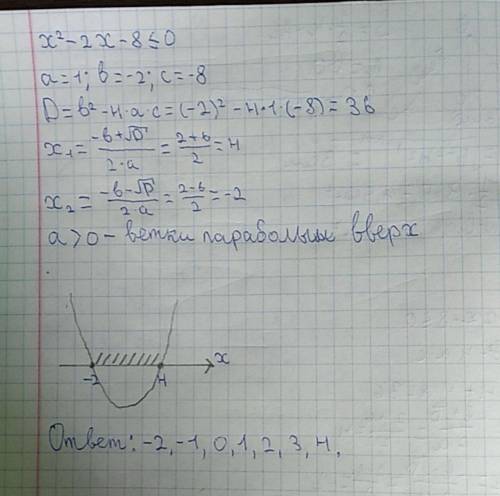 x²-2x-8≤0
a=1; b=-2; c=-8
D=b²-4·a·c=(-2)²-4·1·(-8)=36
x₁=(-b+√D)/(2·a)=(2+6)/2=4
x₂=(-b-√D)/(2·a)=(2-6)/2=-2
a>0-ветки параболы вверх
x
-2 4
Ответ: -2,-1,0,1,2,3,4,